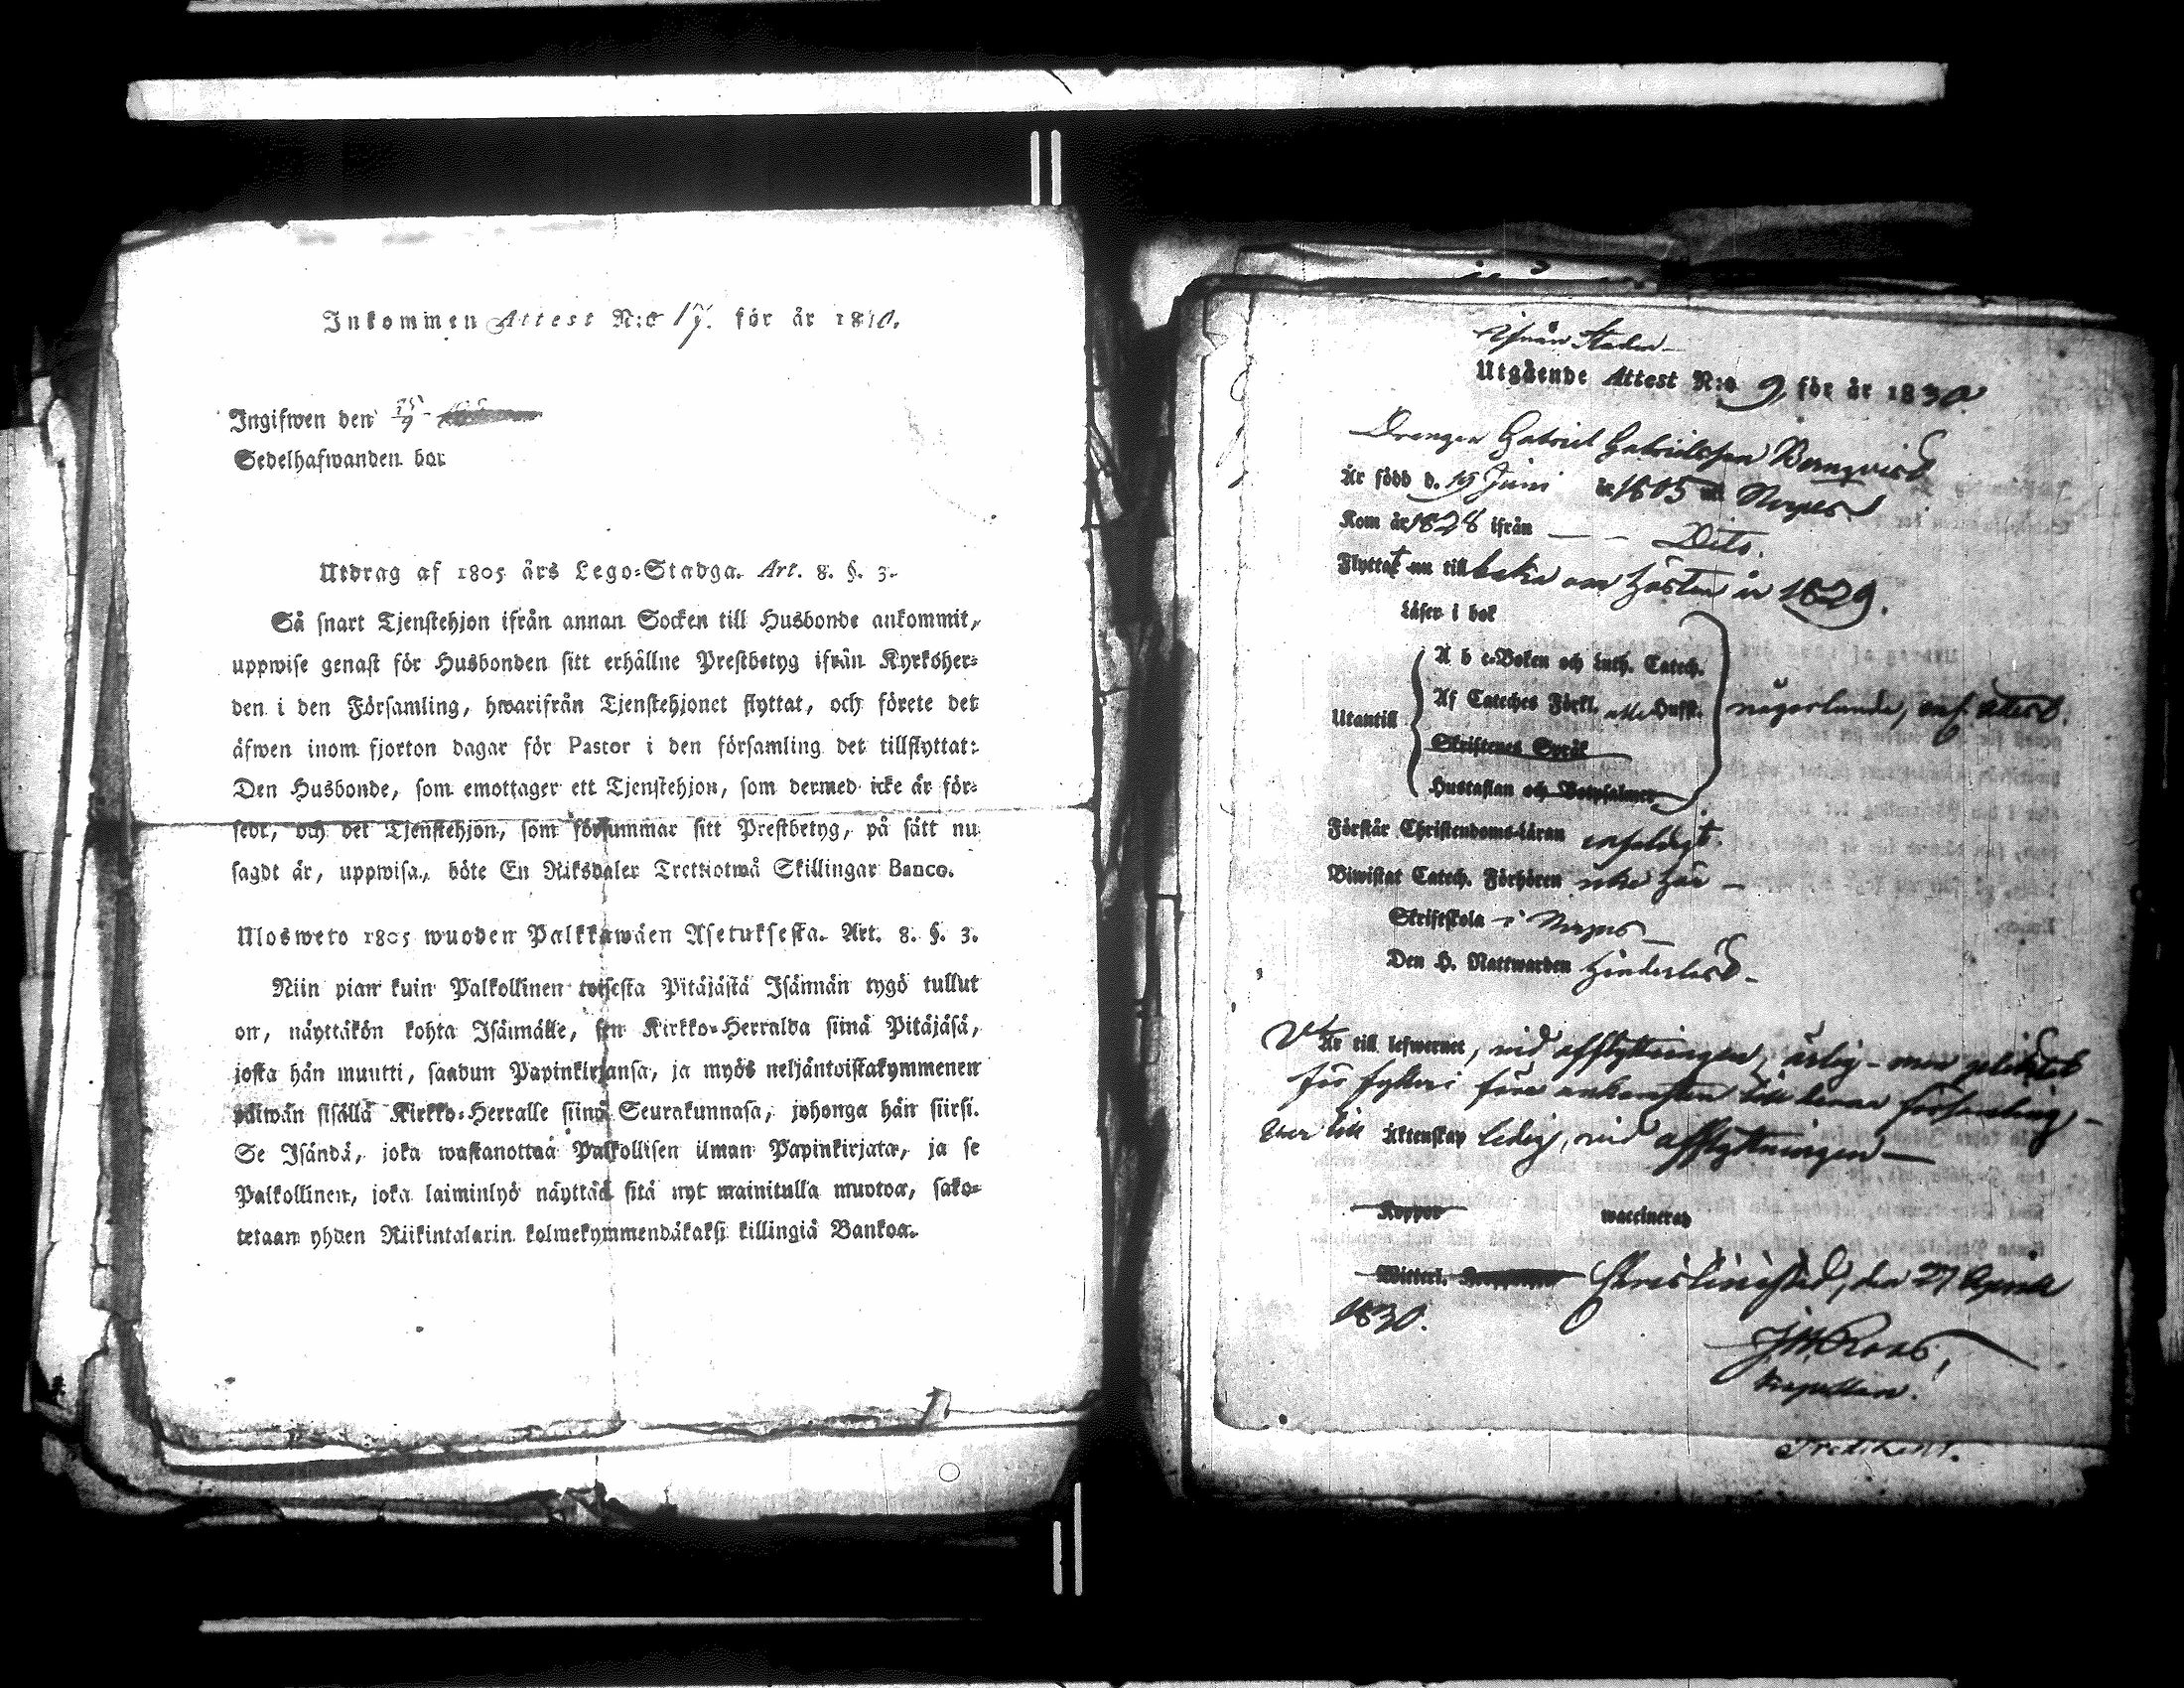 Inkommen Attest N:o 17. för år 1830.
Ingifwen den
Sedelhafwanden bor
Utdrag af 1805 års Lego-Stadga. Art. 8. §. 3.
Så snart Tjenstehjon ifrån annan Socken till Husbonde ankommit,
uppwise genast för Husbonden sitt erhållne Prestbetyg ifrån Kyrkoher-
den i den Församling, hwarifrån Tjenstehjonet flyttat, och förete det
äfwen inom fjorton dagar för Pastor i den församling det tillflyttat:
Den Husbonde, som emottager ett Tjenstehjon, som dermed icke är för-
sedt, och det Tjenstehjon, som försummar sitt Prestbetyg, på sätt nu
sagdt är, uppwisa, böte En Riksdaler Trettiotwå Skillingar Banco.
Ulosweto 1805 wuoden Palkkawäen Asetuksesta. Art. 8. §. 3.
Niin pian kuin Palkollinen toisesta Pitäjästä Isännän tygö tullut
on, näyttäkön kohta Isännälle, sen Kirkko-Herralda siinä Pitäjäsä,
josta hän muutti, saadun Papinkirjansa, ja myös neljäntoistakymmenen
päiwän sisällä Kirkko-Herralle siinä Seurakunnasa, johonga hän siirsi.
Se Isändä, joka wastanottaa Palkollisen ilman Papinkirjata, ja se
Palkollinen, joka laiminlyö näyttää sitä nyt mainitulla muotoa, sako-
tetaan yhden Riikintalarin kolmekymmendäkaksi killingiä Bankoa.
ifrån Staden
Utgående Attest N:o 9 för år 1830.
Drengen Gabriel Gabrielsson
Är född d. 19 Juni år 1805 uti Nerpes
Kom år 1828 ifrån — — Dito.
Flyttat nu tillbaka om hösten år 1829.
Läser i bok
A b c-Boken och Luth. Catech.
Utantill Af Cateches Förkl. Hufst. någorlunda, enl. attest.
Skriftenes Språk
Hustaflan och Botpsalmer
Förstår Christendoms-Läran enfaldigt.
Biwistat Catech. Förhören icke här —
Skriftskola i Nerpes —
Den H. Nattwarden hinderlöst —
Är till lefwernet, vid afflyttningen, ärlig - men pliktat
för fylleri före ankomsten till denna församling —
Äktenskap ledig, vid afflyttningen —
Koppor waccinerad
Witterl. Christinestad, den 27 April
1830.